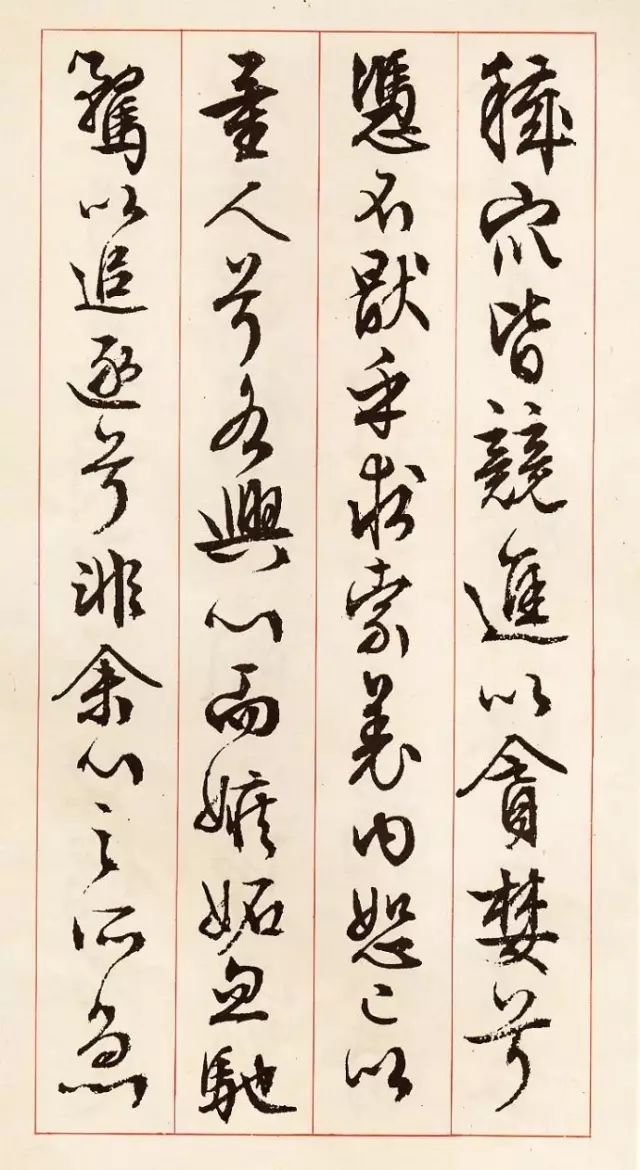 穢衆皆競進以貪婪兮
憑不猒乎求索羌内恕己以
量人兮各興心而嫉妬忽馳
騖以追逐兮非余心之所急